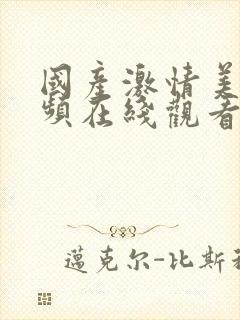 國產激情美
頻在綫觀看
邁克尔-比斯利